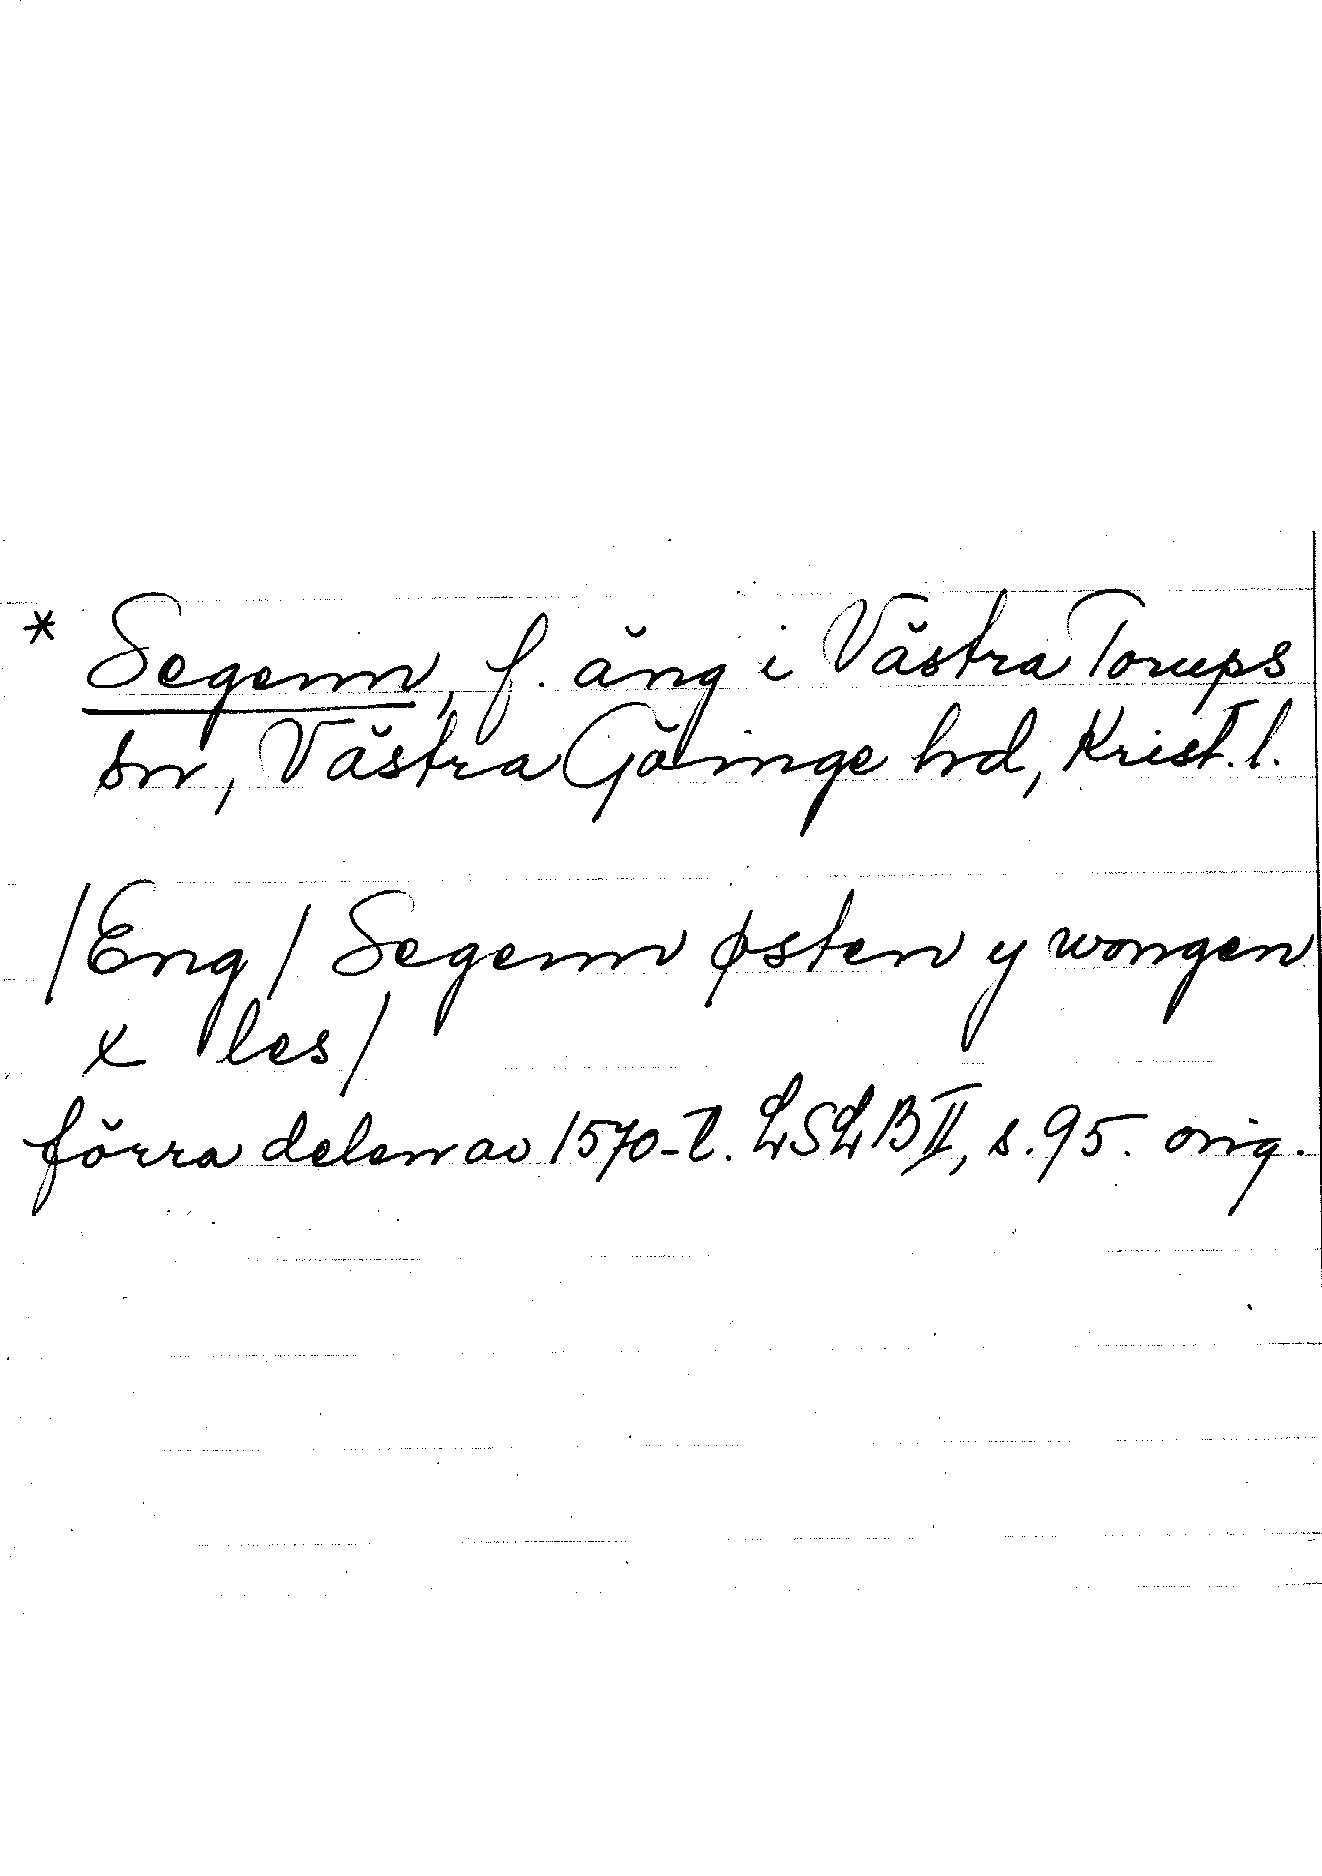 * Segenn, f. äng i Västra Torups
sn, Västra Göinge hd, Krist. l.
/Eng/ Segenn østen y wongen
x les/
förra delen av 1570-t. LSLB II, s. 95. orig.